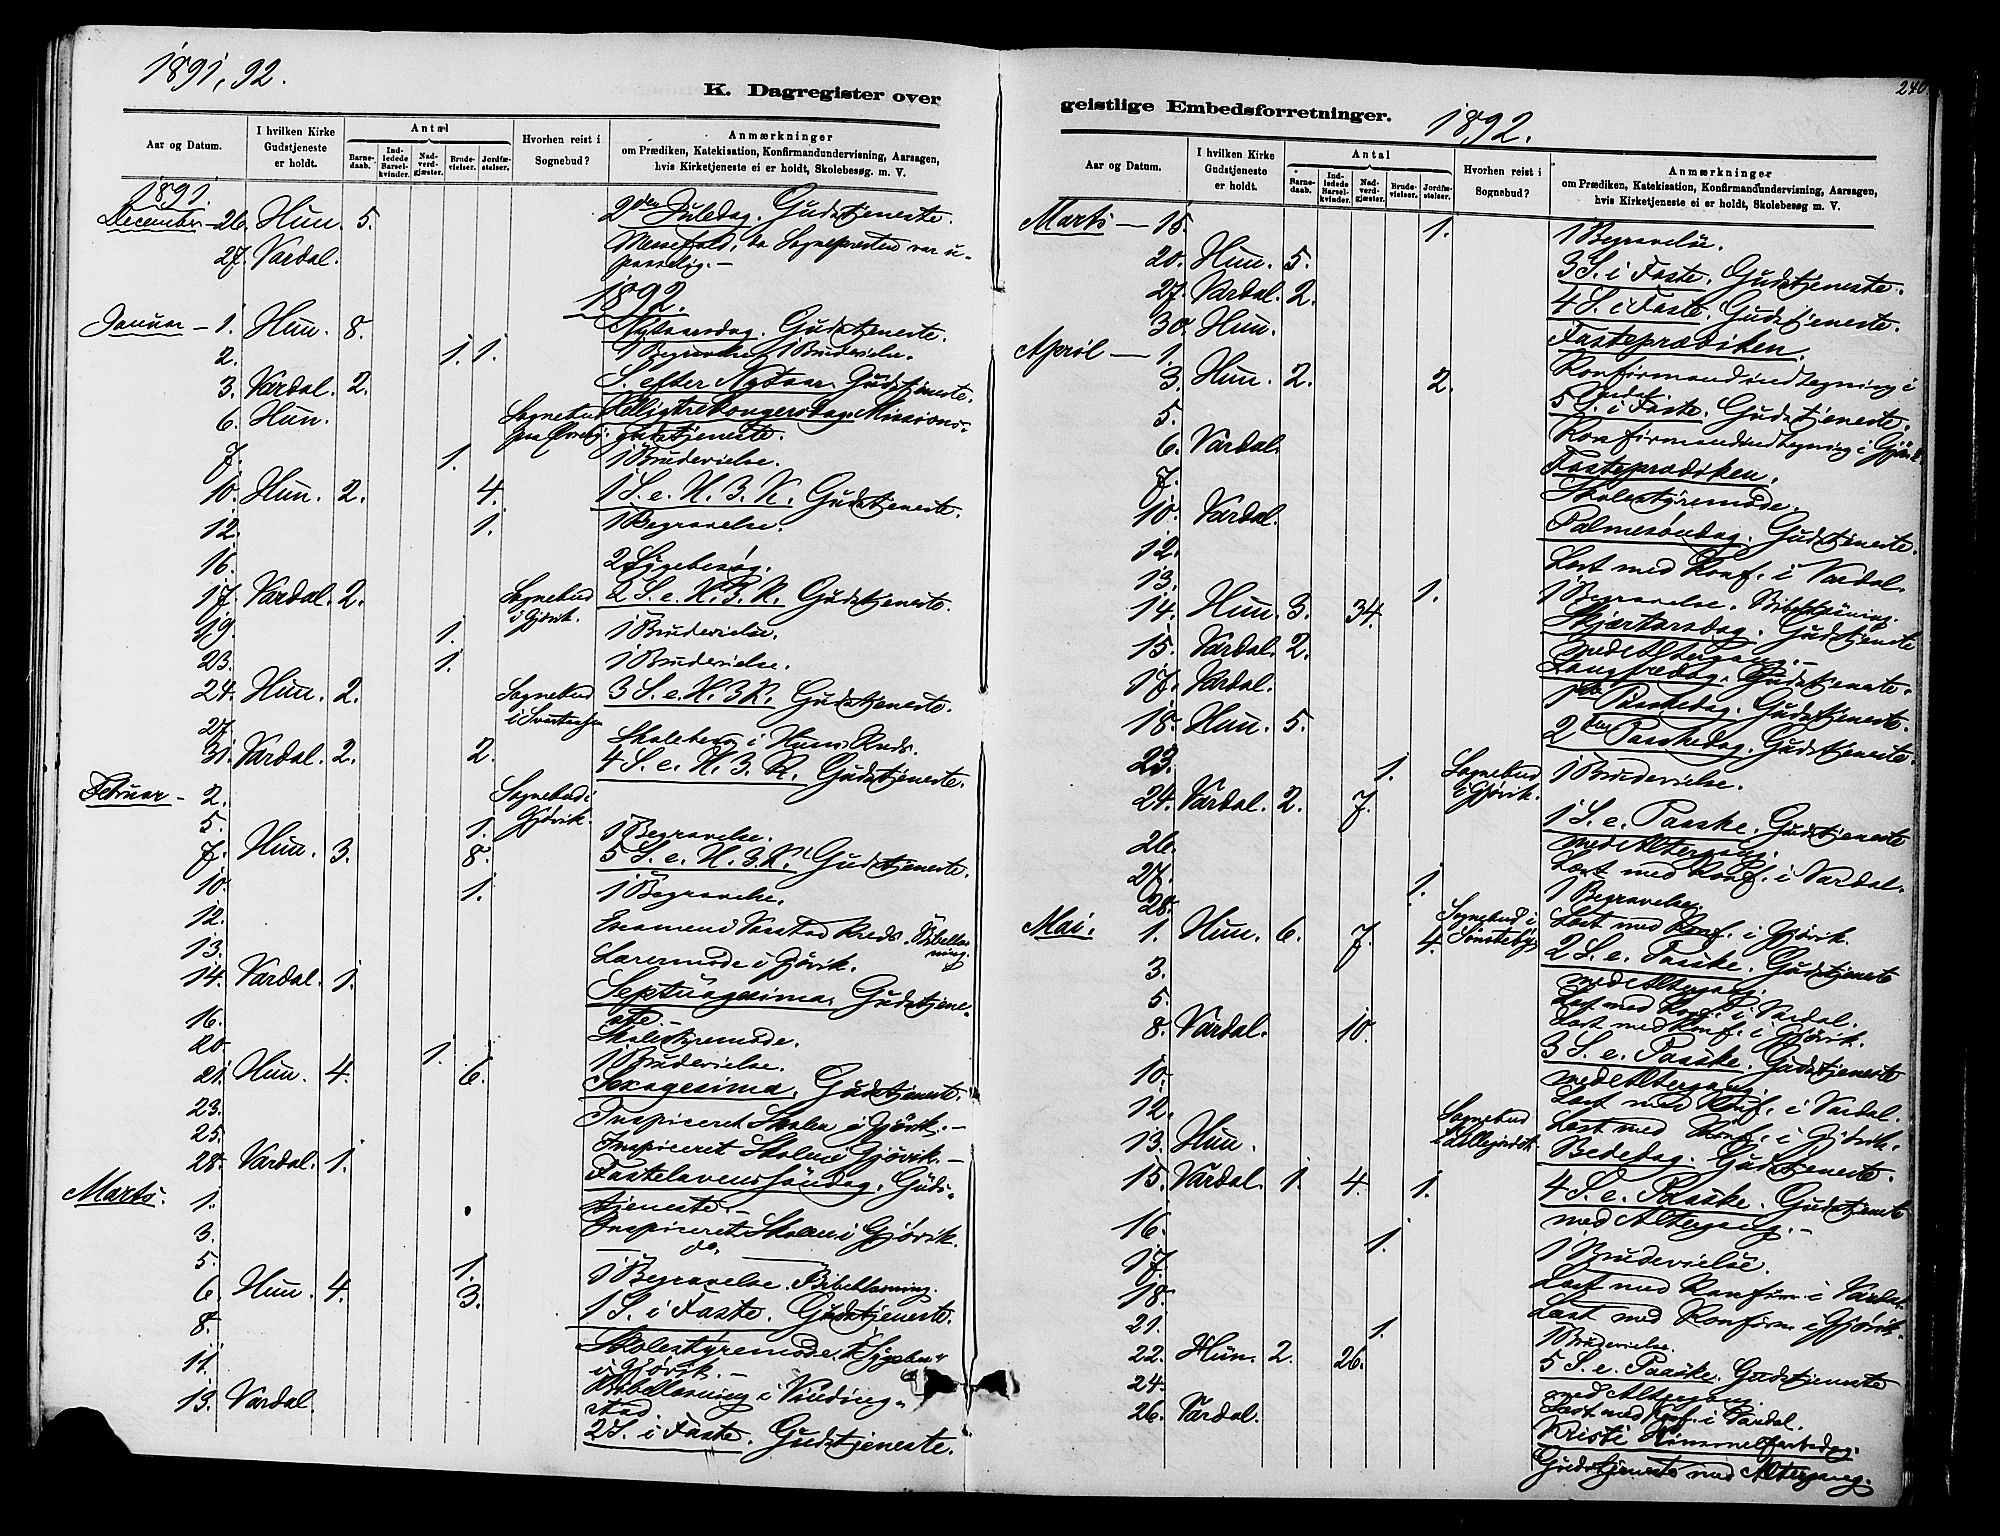 1891, 92.
K. Dagregister over
Aar og Datum.
I hvilken Kirke Gudstjeneste er holdt.
Antal
Barnedaab.
Indledede Barselkvinder.
Nadverdgjæster.
Brudevielser.
Jordfæstelser.
Hvorhen reist i Sognebud?
Anmærkninger
om Prædiken, Katekisation, Konfirmandundervisning, Aarsagen,
hvis Kirketjeneste ei er holdt, Skolebesøg m. V.
1891.
December - 26. Hun. 5. 2den Juledag. Gudstjeneste.
27. Vardal. Messefald, da Sognepresten var u-
passelig. -
1892.
Januar - 1. Hun. 8. Nytaarsdag. Gudstjeneste.
2. 1. 1. 1 Begravelse, 1 Brudevielse.
3. Vardal. 2. S. efter Nytaar. Gudstjeneste.
6. Hun. Sognebud Helligtrekongersdag. Missions-
gudstjeneste.
7. 1. 1 Brudevielse.
10. Hun. 2. 4. 1 S. e. H. 3. K. Gudstjeneste.
12. 1. 1 Begravelse.
16. 2 Sygebesøg.
17. Vardal. 2. Sognebud i Gjøvik. 2 S. e. H. 3. K. Gudstjeneste.
19. 1. 1 Brudevielse.
23. 1. 1 Brudevielse.
24. Hun. 2. Sognebud 3 S. e. H. 3 K. Gudstjeneste.
27. i Huns Kreds.
31. Vardal. 2. 2. 4 S. e. H. 3. K. Gudstjeneste.
Februar - 2. Sognebud i Gjøvik.
5. 1. 1 Begravelse.
7. Hun. 3. 8. 5 S. e. H. 3. K. Gudstjeneste.
10. 1. 1 Begravelse.
12. Examen i Kreds. Bibellæsning.
13. Lærermøde i Gjøvik.
14. Vardal. 1. Septuagesima. Gudstjene-
ste.
16. Skolestyremøde.
20. 1. 1 Brudevielse.
21. Hun. 4. 6. Sexagesima. Gudstjeneste.
23. Inspiceret Skolen i Gjøvik. -
25. Inspiceret Skolen i Gjøvik. -
28. Vardal. 1. Fastelavenssøndag. Guds-
tjeneste. -
Marts. 1. Inspiceret Skolen i Gjøvik.
3. do.
5. 1. 1 Begravelse. Bibellæsning.
6. Hun. 4. 3. 1 S. i Faste. Gudstjeneste.
8. Skolestyremøde.
i Gjøvik. -
11. Bibellæsning i Vinding-
stad
13. Vardal. 2 S. i Faste. Gudstjeneste.
240.
geistlige Embedsforretninger.
1892.
Aar og Datum.
I hvilken Kirke Gudstjeneste er holdt.
Antal
Barnedaab.
Indledede Barselkvinder.
Nadverdgjæster.
Brudevielser.
Jordfæstelser.
Hvorhen reist i Sognebud?
Anmærkninger
om Prædiken, Katekisation, Konfirmandundervisning, Aarsagen,
hvis Kirketjeneste ei er holdt, Skolebesøg m. V.
Marts - 15. 1. 1 Begravelse.
20. Hun. 5. 3 S. i Faste. Gudstjeneste.
27. Vardal. 2. 4 S. i Faste. Gudstjeneste.
30. Hun. Fasteprædiken.
April - 1. Konfirmandindtegning i
Vardal.
3. Hun. 2. 2. 5 S. i Faste. Gudstjeneste.
5. Konfirmandindtegning i Gjøvik.
6. Vardal. Fasteprædiken.
7. Skolestyremøde.
10. Vardal. Palmesøndag. Gudstjeneste.
12. Læst med Konf. i Vardal.
13. 1. 1 Begravelse. Bibellæsning.
14. Hun. 3. 34. Skjærtorsdag. Gudstjeneste
med Altergang. -
15. Vardal. 2. Langfredag. Gudstjeneste.
17. Vardal. 1ste Paaskedag. Gudstjeneste.
18. Hun. 5. 2den Paaskedag. Gudstjeneste.
23. 1. Sognebud i Gjøvik. 1 Brudevielse.
24. Vardal. 2. 7. 1 S. e. Paaske. Gudstjeneste
med Altergang.
26. Læst med Konf. i Vardal.
27. 1. 1 Begravelse.
28. Læst med Konf. i Gjøvik.
Mai. 1. Hun. 6. 7. 4. Sognebud i Sønsteby. 2 S. e. Paaske. Gudstjeneste
med Altergang.
3. Læst med Konf. i Vardal.
5. Læst med Konf. i Gjøvik.
8. Vardal. 10. 3 S. e. Paaske. Gudstjeneste
med Altergang.
10. Læst med Konf. i Vardal.
12. Læst med Konf. i Gjøvik.
13. Hun. Sognebud Bededag. Gudstjeneste.
15. Vardal. 1. 4. 1. 4 S. e. Paaske. Gudstjeneste
med Altergang. -
16. 1. 1 Brudevielse.
17. Læst med Konfirm. i Vardal.
18. Læst med Konfirm. i Gjøvik.
21. 1. 1 Brudevielse.
22. Hun. 2. 26. 5 S. e. Paaske. Gudstjeneste
med Altergang.
24. Læst med Konf. i Vardal.
26. Vardal. Kristi Himmelfartsdag.
Gudstjeneste med Altergang.